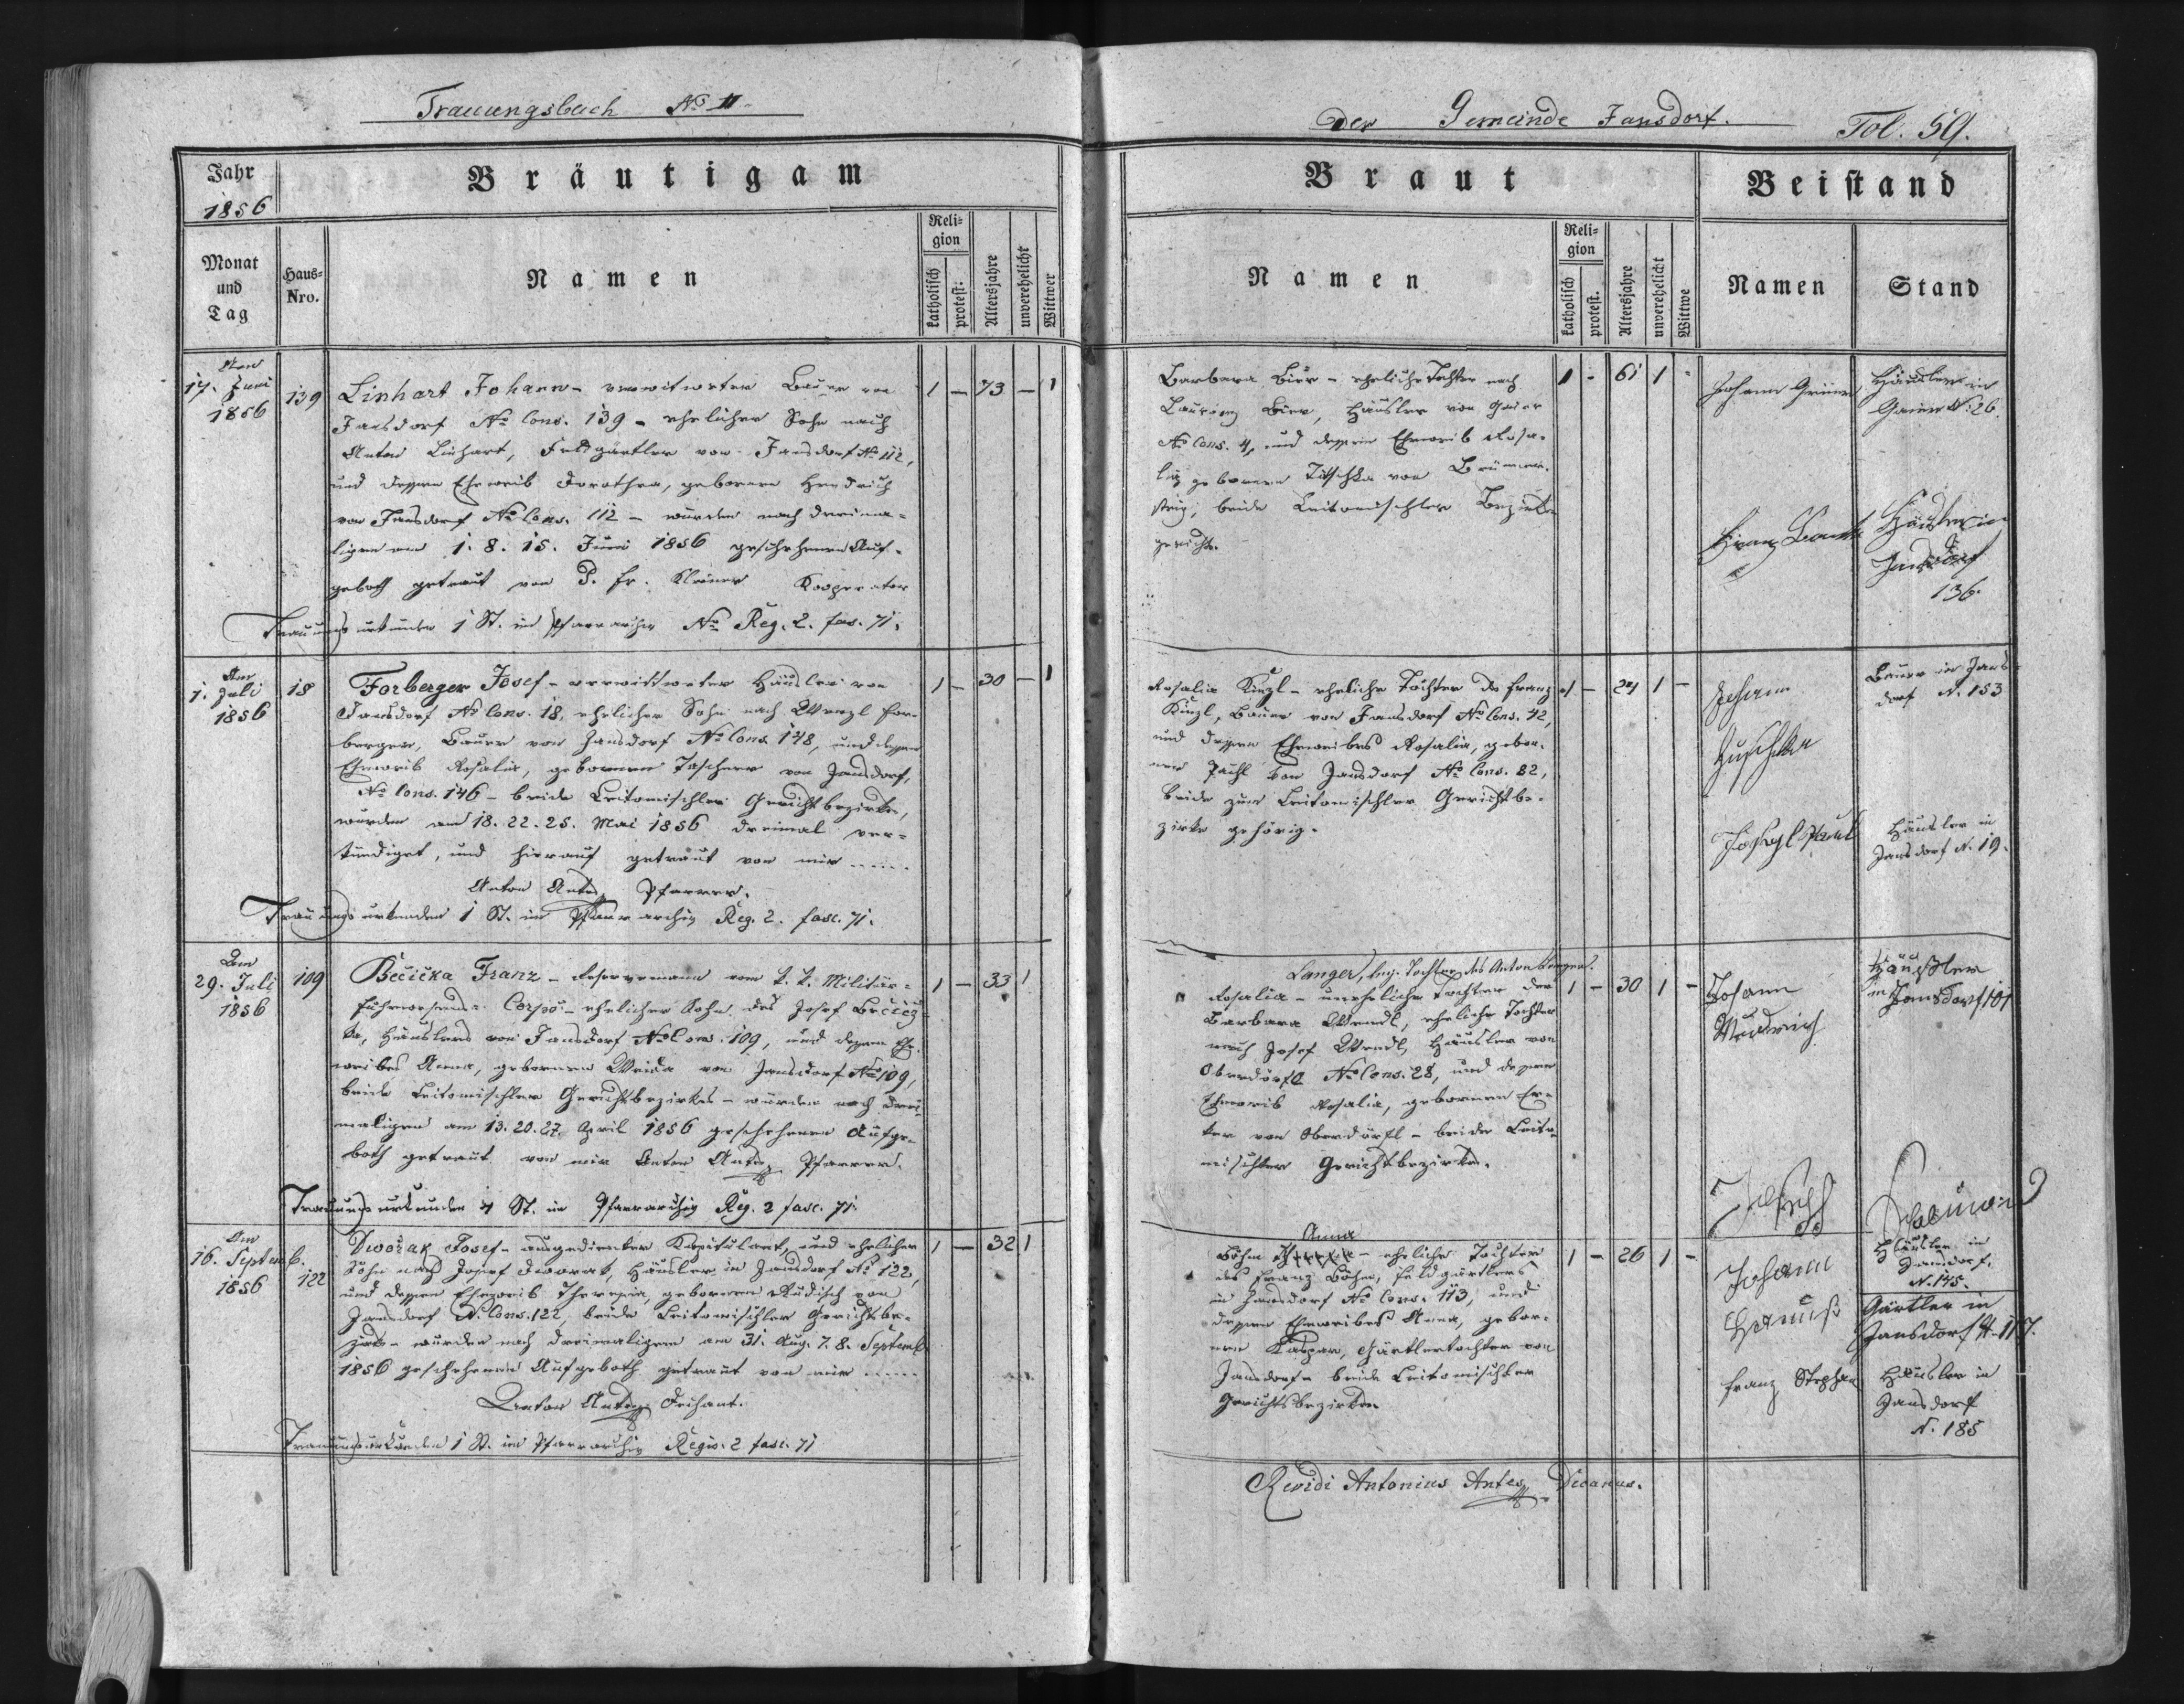 Trauungsbuch No II.
Jahr
1856
Bräutigam
Monat
und
Tag
Haus-
Nro.
Namen
Reli-
gion
katholisch
protest:
Altersjahre
unverehelicht
Wittwer
Den
17. Juni
1856
139
Linhart Johann - verwitweter Bauer von
Jansdorf No Cons. 139 - ehelicher Sohn nach
Anton Linhart, Feldgärtler von Jansdorf No 112,
und dessen Eheweib Dorothea, geborene
von Jansdorf No Cons. 112 - wurden nach dreima-
ligen am 1. 8. 15. Juni 1856 geschehenen Auf-
geboth getraut von P. Fr. Kooperator
Trauungsurkunden 1 St. im Pfarrarchiv No Reg. 2. fas. 71.
1 - 73 - 1
Am
1. Juli
1856
18
Forberger Josef - verwittweter Häusler von
Jansdorf No Cons. 18, ehelicher Sohn nach Wenzl For-
berger, Bauer von Jansdorf No Cons. 148, und dessen
Eheweib Rosalia, geborenen Tascher von Jansdorf,
No Cons. 146 - beide Leitomischler Gerichtbezirke,
wurden am 18. 22. 25. Mai 1856 dreimal ver-
kündiget, und hierauf getraut von mir .....
Anton Antes, Pfarrer.
Trauungsurkunden 1 St. im Pfarrarchiv Reg. 2. fasc. 71.
1 - 30 - 1
Den
29. Juli
1856
109
Bečička Franz - Reservemann vom k. k. Militär-
Fuhrwesens-Corps - ehelicher Sohn des Josef
ka, Häuslers von Jansdorf No Cons. 109, und dessen Ehe-
weibes Anna, geborenen von Jansdorf No 109,
beide Leitomischler Gerichtbezirkes - wurden nach drei-
maligen am 13. 20. 27. April 1856 geschehenen Aufge-
both getraut von mir Anton Antes, Pfarrer.
Trauungsurkunden 4 St. im Pfarrarchiv Reg. 2 fasc. 71.
1 - 33 1
Am
16. Septemb.
1856
122
Dwořak Josef - ausgedienter Kapitulant, und ehelicher
Sohn nach Josef Dwořak, Häusler in Jansdorf No 122,
und dessen Eheweib Theresia, geborenen Rudisch von
Jansdorf N. Cons. 122, beide Leitomischler Gerichtbe-
zirks - wurden nach dreimaligen am 31. Aug. 7. 8. Septemb.
1856 geschehenen Aufgeboth getraut von mir .....
Anton Antes, Dechant.
Trauungsurkunden 1 St. im Pfarrarchiv Regis. 2 fasc. 71
1 - 32 1
Der Gemeinde Jansdorf. Fol. 59.
Braut
Beistand
Namen
Reli-
gion
katholisch
protest.
Altersjahre
unverehelicht
Wittwe
Namen
Stand
Barbara Bier - eheliche Tochter nach
Bier, Häusler von
No Cons. 4, und dessen Eheweib Rosa-
lia geborenen von
beide Leitomischler Bezirks
gericht.
1 - 61 1 -
Johann
Häusler in
N: 26.
Franz
Häusler in
Jansdorf
136.
Rosalia Kinzl - eheliche Tochter des Franz
Kinzl, Bauer von Jansdorf No Cons. 42,
und dessen Eheweibes Rosalia, gebor-
nen von Jansdorf No Cons. 82,
beide zum Leitomischler Gerichtbe-
zirke gehörig.
1 - 24 1 -
Johann
Huschka
Bauer in Jans
dorf N. 153
Häusler in
Jansdorf N. 19.
Langer, leg. Tochter des Anton Langer.
Rosalia - uneheliche Tochter der
Barbara Wendl, eheliche Tochter
nach Josef Wendl, Häusler von
Oberdörfl No Cons. 28, und dessen
Eheweib Rosalia, geborenen
von Oberdörfl - beide Leito-
mischler Gerichtbezirke.
1 - 30 1 -
Johann
Häußler
in Jansdorf 101
Joseph
Anna
Böhm - eheliche Tochter
des Franz Böhm, Feldgärtlers
in Jansdorf No Cons. 113, und
dessen Eheweibes Anna, gebor-
nen Kaspar, Gärtlertochter von
Jansdorf - beide Leitomischler
Gerichtsbezirke.
1 - 26 1 -
Johann
Häusler in
Jansdorf,
N. 145.
Gärtler in
Jansdorf N. 117.
Franz Stephan
Häusler in
Jansdorf
N. 185
Revidi Antonius Antes, Decanus.